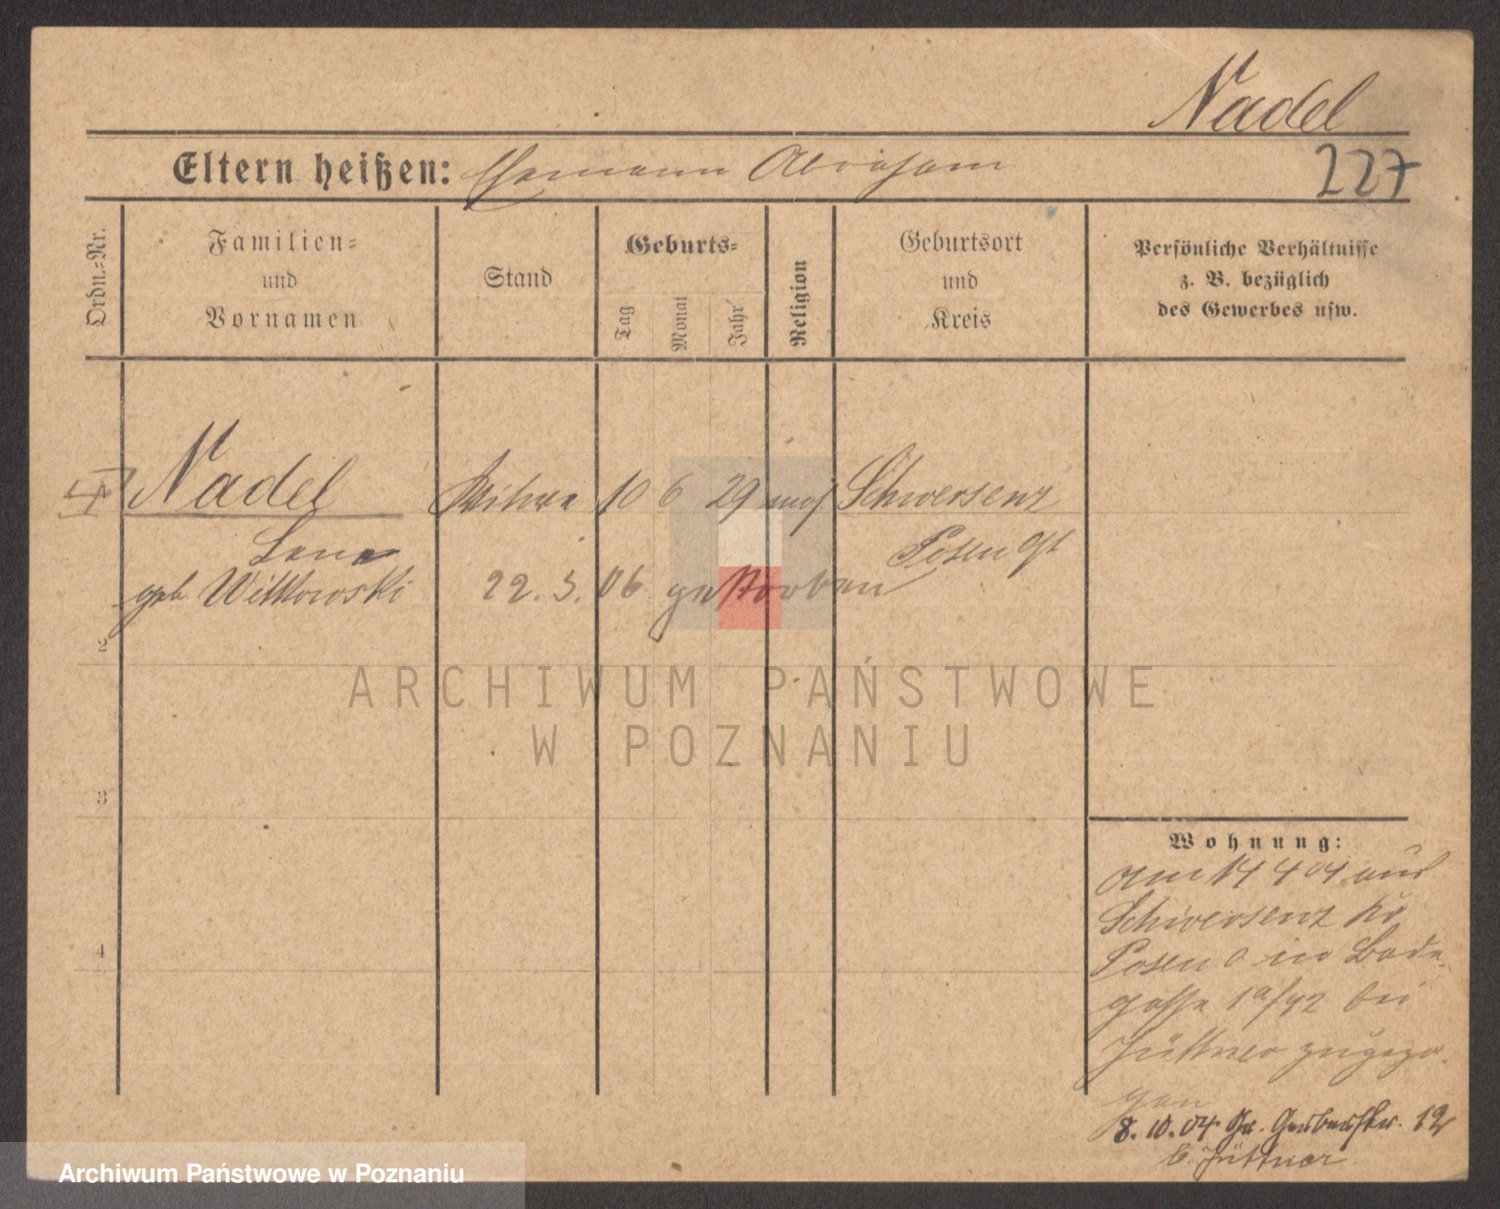 Nadel
Eltern heißen: Hermann Abraham
227
Ordn.-Nr.
Familien-
und
Vornamen
Stand
Geburts-
Tag
Monat
Jahr
Religion
Geburtsort
und
Kreis
Persönliche Verhältnisse
z. B. bezüglich
des Gewerbes usw.
Nadel Witwe 10 6 29 mos Schwersenz
Lene Posen Ost
geb Witkowski 22. 5. 06 gestorben
2
3
4
Wohnung:
am 14 4 04 aus
Schwersenz Kr
Posen O in Bade-
gasse 1a/92 bei
Jüttner zugezo-
gen
8. 10. 04 Gr. Gerberstr. 12
b. Jüttner
ARCHIWUM PAŃSTWOWE
W POZNANIU
Archiwum Państwowe w Poznaniu